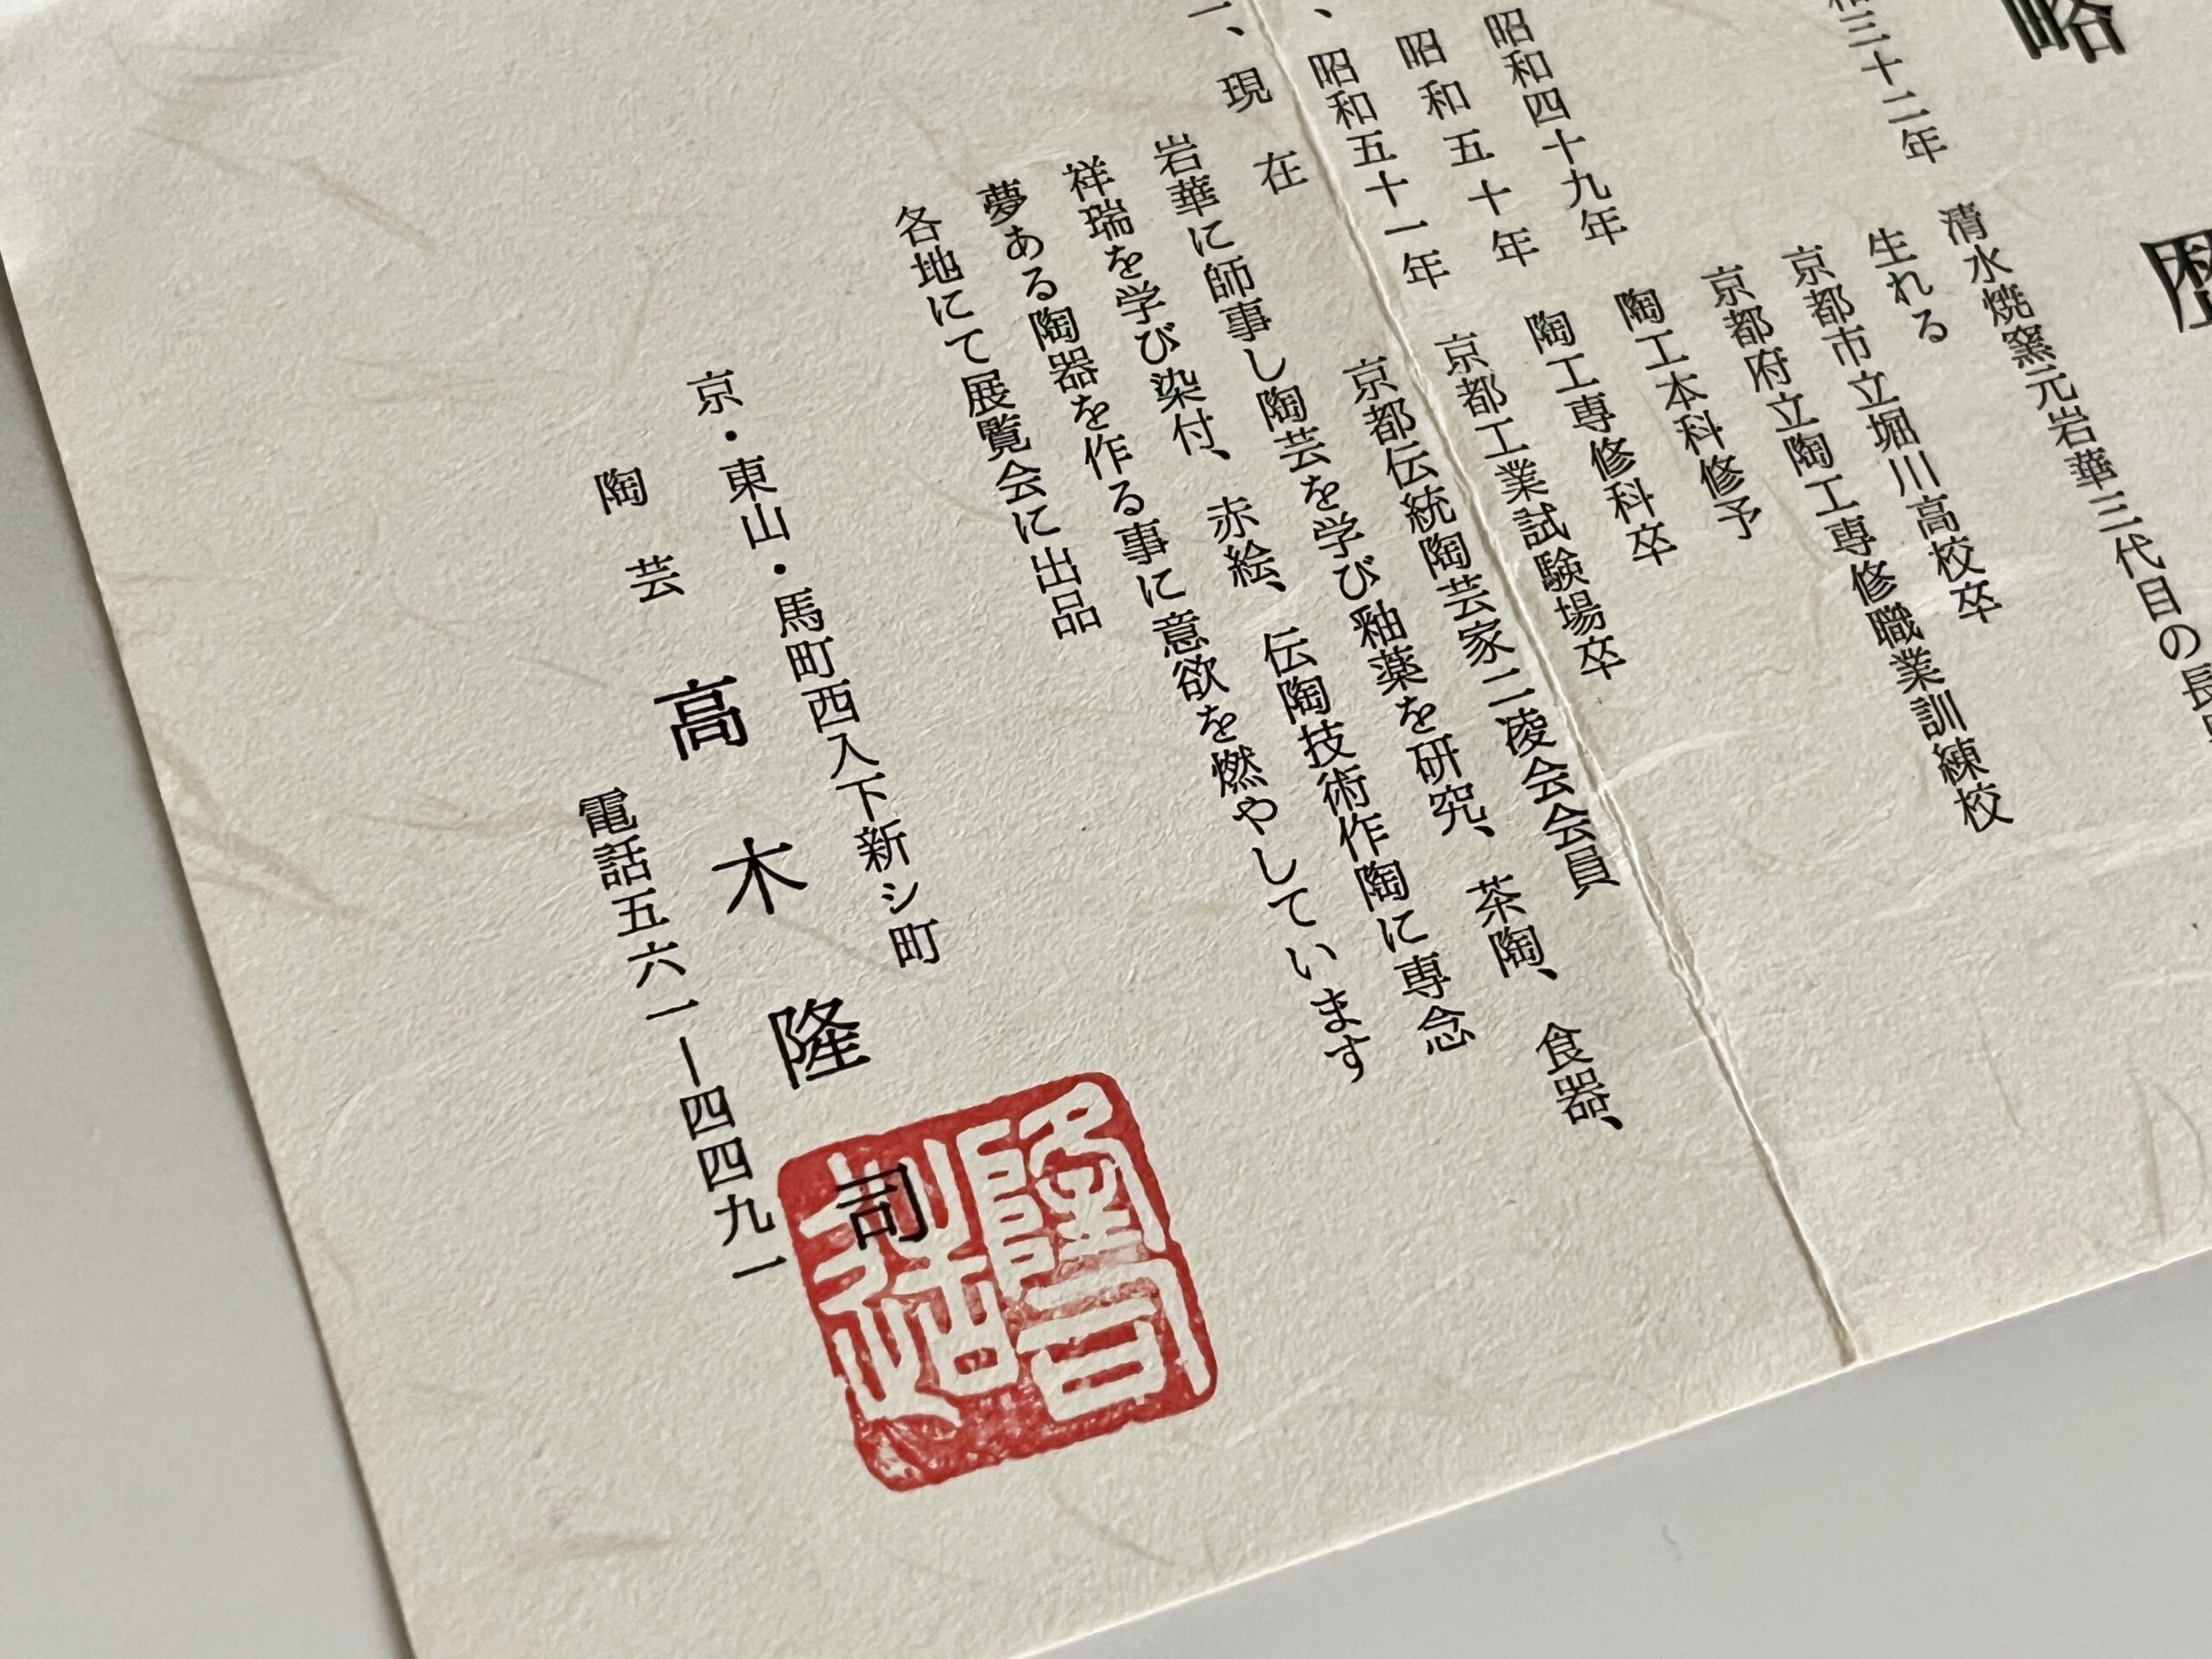 略歴
和三十二年 清水焼窯元岩華三代目の長
生れる
京都市立堀川高校卒
京都府立陶工専修職業訓練校
陶工本科修予
昭和四十九年 陶工専修科卒
昭和五十年 京都工業試験場卒
、昭和五十一年 京都伝統陶芸家二凌会会員
一、現在
岩華に師事し陶芸を学び釉薬を研究、茶陶、食器、
祥瑞を学び染付、赤絵、伝陶技術作陶に専念
夢ある陶器を作る事に意欲を燃やしています
各地にて展覧会に出品
京・東山・馬町西入下新シ町
陶芸 高木隆司
電話五六一―四四九一
隆司